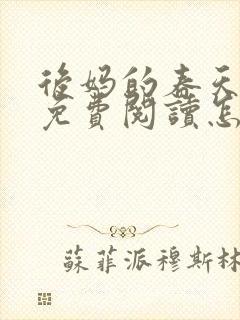 後妈的春天
免費閱讀怎
蘇菲派穆斯林